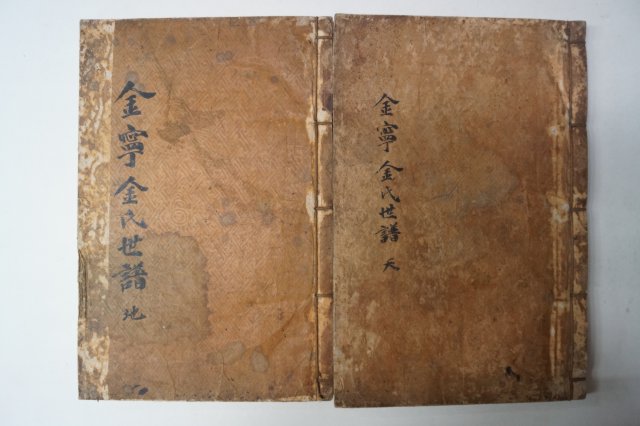 金寧金氏世譜 天
金寧金氏世譜 地